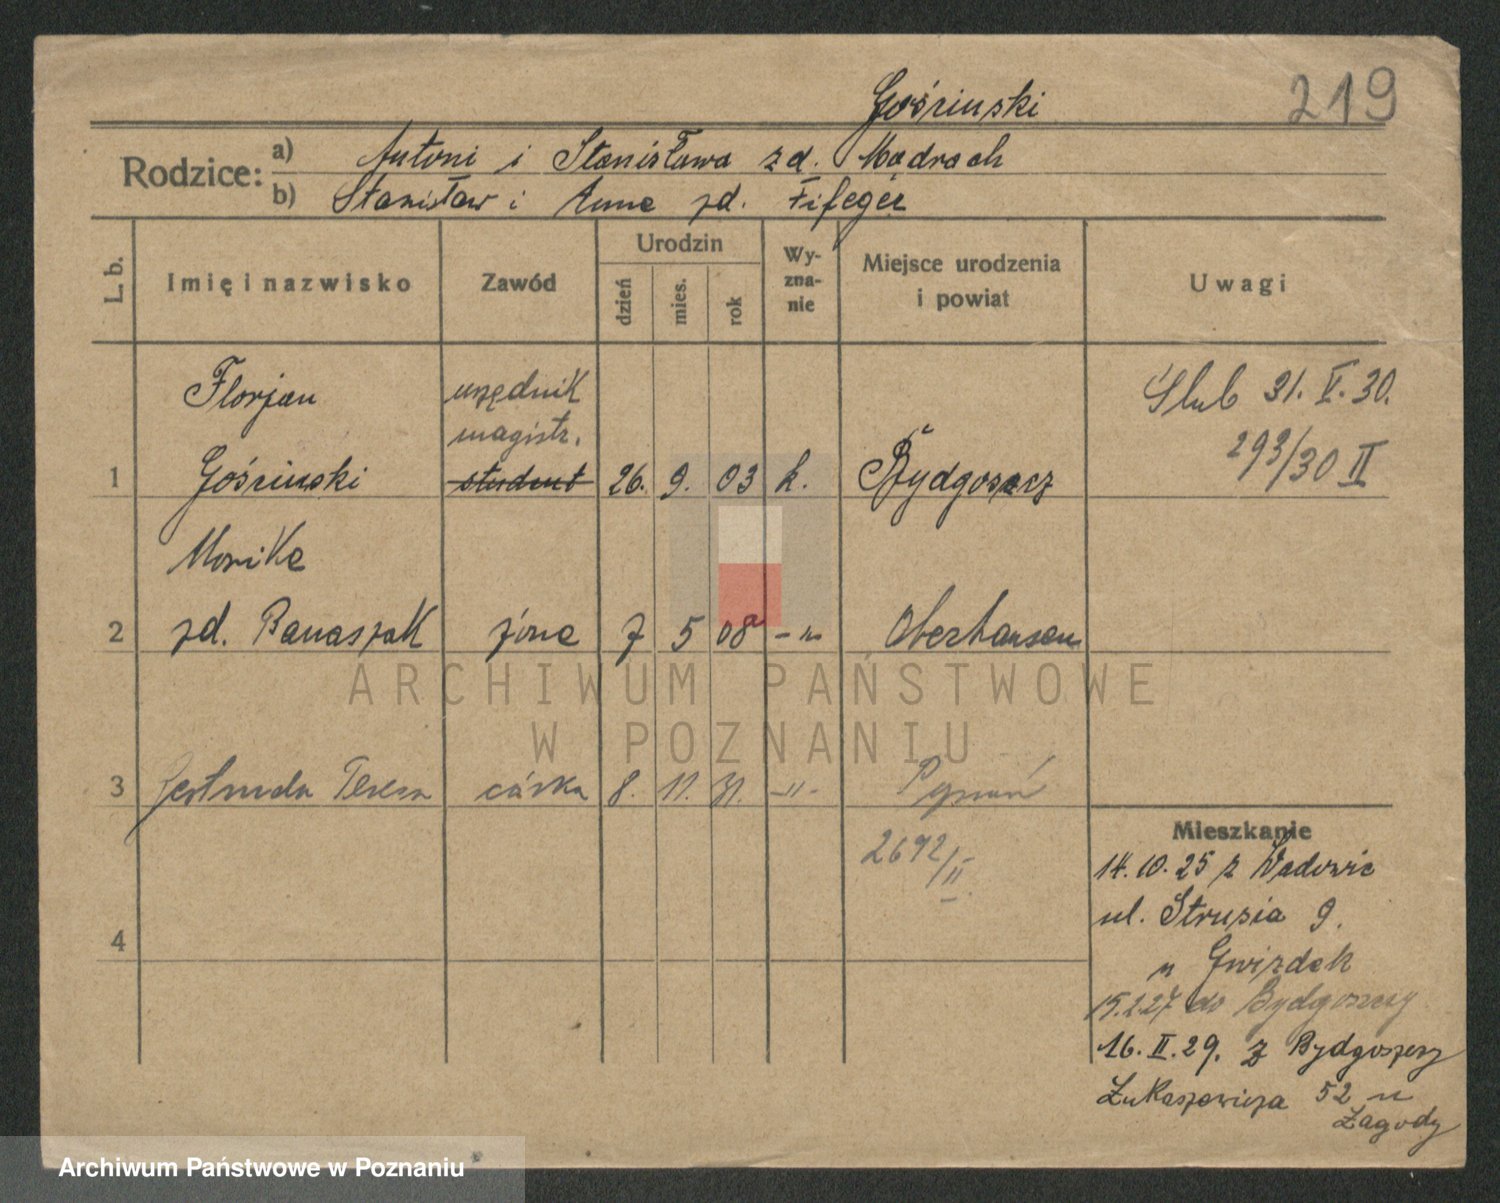 Gośriński
219
Rodzice:
a) Antoni i Stanisława zd. Mądrach
b) Stanisław i Anna zd. Fifeger
L. b.
Imię i nazwisko
Zawód
Urodzin
dzień
mies.
rok
Wy-
zna-
nie
Miejsce urodzenia
i powiat
Uwagi
Florjan
urzędnik
magistr.
Ślub 31. V. 30.
293/30 II
1 Gośriński student 26. 9. 03 k. Bydgoszcz
Monika
2 zd. Banaszak żona 7 5 08 -"- Oberhausen
3 Gertruda Teresa córka 8. 11. 31. -"- Poznań
2692/II
4
Mieszkanie
14.10.25 z Wadowic
ul. Strusia 9.
u Gwizdek
15.2.27 do Bydgoszczy
16. II. 29. z Bydgoszczy
Łukaszewicza 52 u
Zagody
ARCHIWUM PAŃSTWOWE
W POZNANIU
Archiwum Państwowe w Poznaniu